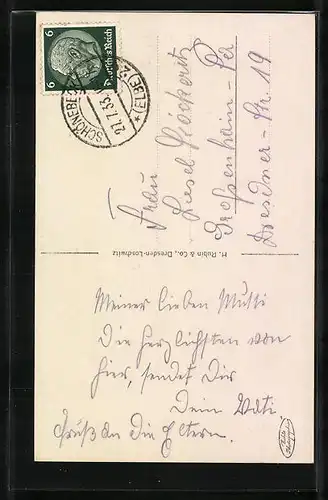 6 Deutsches Reich 6
SCHÖNEBECK (ELBE) 2
27.7.33
Frau
Liesel
Großenhain-Sa
Dresdner-Str. 19
M. Rubin & Co., Dresden-Loschwitz
Meiner lieben Mutti
die herzlichsten von
hier, sendet Dir
Dein Vati
Gruß an die Eltern.